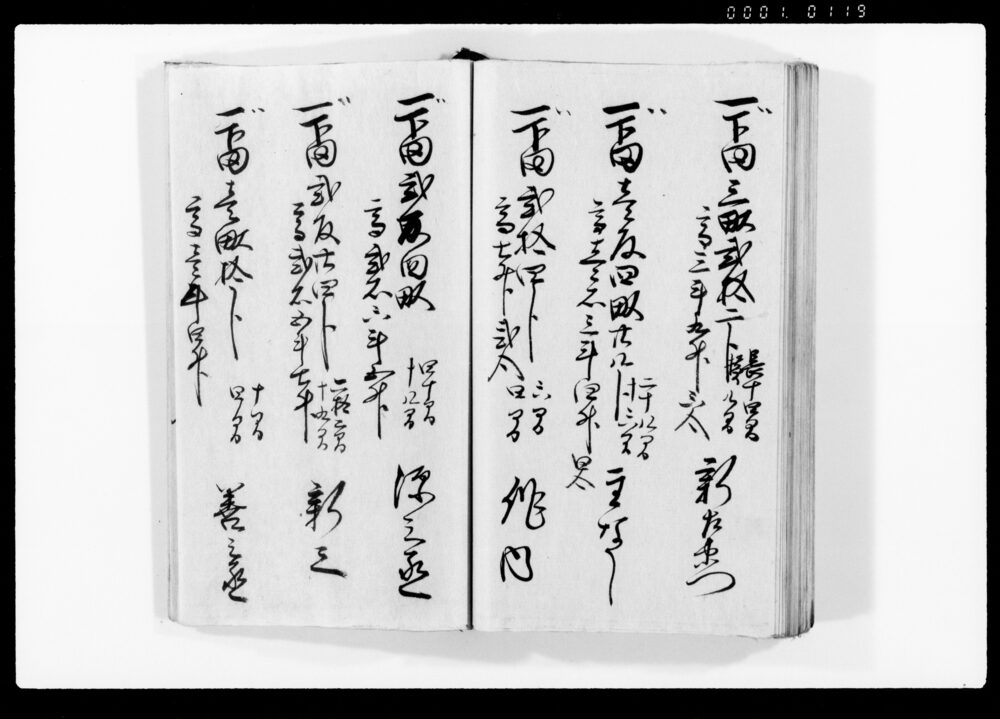 0001.0119
一下田 三畝弐拾二卜
長十四間
横八間
高三斗九升三合
新右衛門
一下田 壱反四畝廿八卜
二十八間
十六間
高壱石三斗四升四合
主なし
一下田 弐拾四卜
六間
四間
高七升弐合
作内
一下田 弐反四畝
四十間
十八間
高弐石六斗五升
源之丞
一下田 弐反廿四卜
十九間
高弐石五斗七升
新三
一下田 壱畝拾卜
十間
四間
高壱斗四升
善之丞